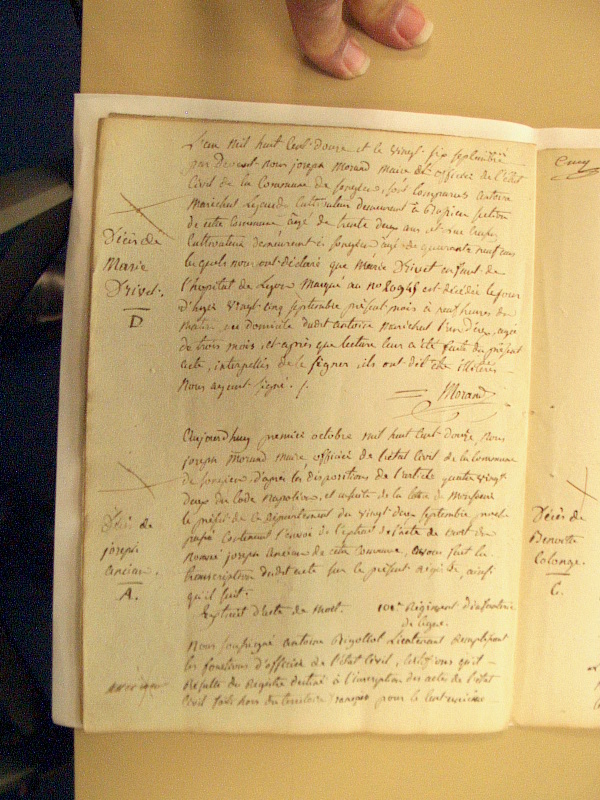 L'an mil huit Cent douze et le vingt six septembre
par Devant nous joseph Morand Maire et officier de l'état
Civil de la Commune de songieu, sont Comparus antoine
Marechal Cultivateur demeurant à
de cette Commune âgé de trente deux ans, et
Cultivateur demeurant à songieu âgé de quarante neuf ans
lesquels nous ont déclaré que Marie Drivet enfant de
l'hopital de Lyon Marqué au no 20945 est décédée le jour
d'hyer vingt cinq septembre présent mois à neuf heures du
Matin, au domicile dudit antoine Marechal agée
de trois mois, et après que lecture leur a été faite du présent
acte, interpellés de le signer, ils ont dit être illitérés
Nous ayant signé. /.
Morand
Décès de
Marie
Drivet.
D
Aujourd'huy premier octobre mil huit Cent douze, Nous
joseph Morand Maire officier de l'état Civil de la Commune
de songieu, d'après les dispositions de l'article quatre vingt
deux du Code Napoléon, et ensuite de la lettre de Monsieur
le préfet de ce Département du vingt deux septembre
Contenant l'envoi de l'extrait de l'acte de mort du
nommé joseph ancian de cette Commune, avons fait la
transcription dudit acte sur le présent Registre ainsi
qu'il suit:
Extrait d'acte de Mort. 101e Régiment d'infanterie
de ligne.
Nous soussigné antoine Rigollot Lieutenant Remplissant
les fonctions d'officier de l'état Civil, Certifions qu'il
Résulte du Registre destiné à l'inscription des actes de l'état
Civil faits hors du territoire français pour le Cent unième
Décès de
joseph
ancian.
A.
Décès de
Benoite
Colonge.
C.